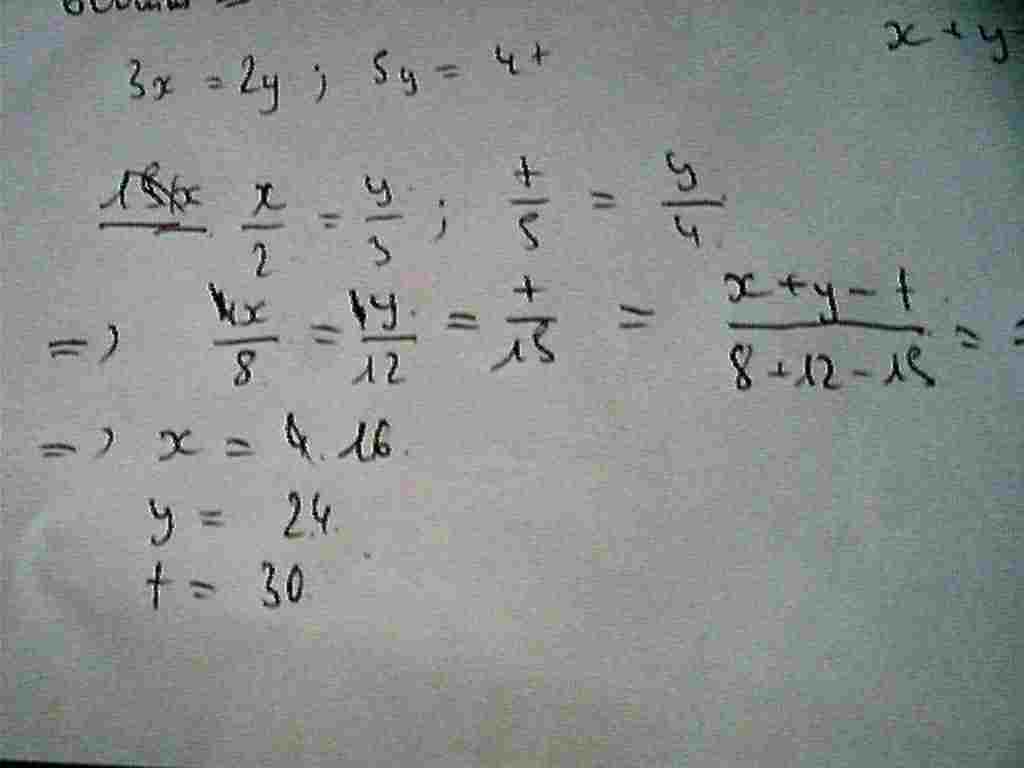 x + y
3x = 2y ; 5y = 4t
x/2 = y/3 ; t/5 = y/4
=> x/8 = y/12 = t/15 = (x + y - t)/(8 + 12 - 15) =
=> x = 16.
y = 24.
t = 30